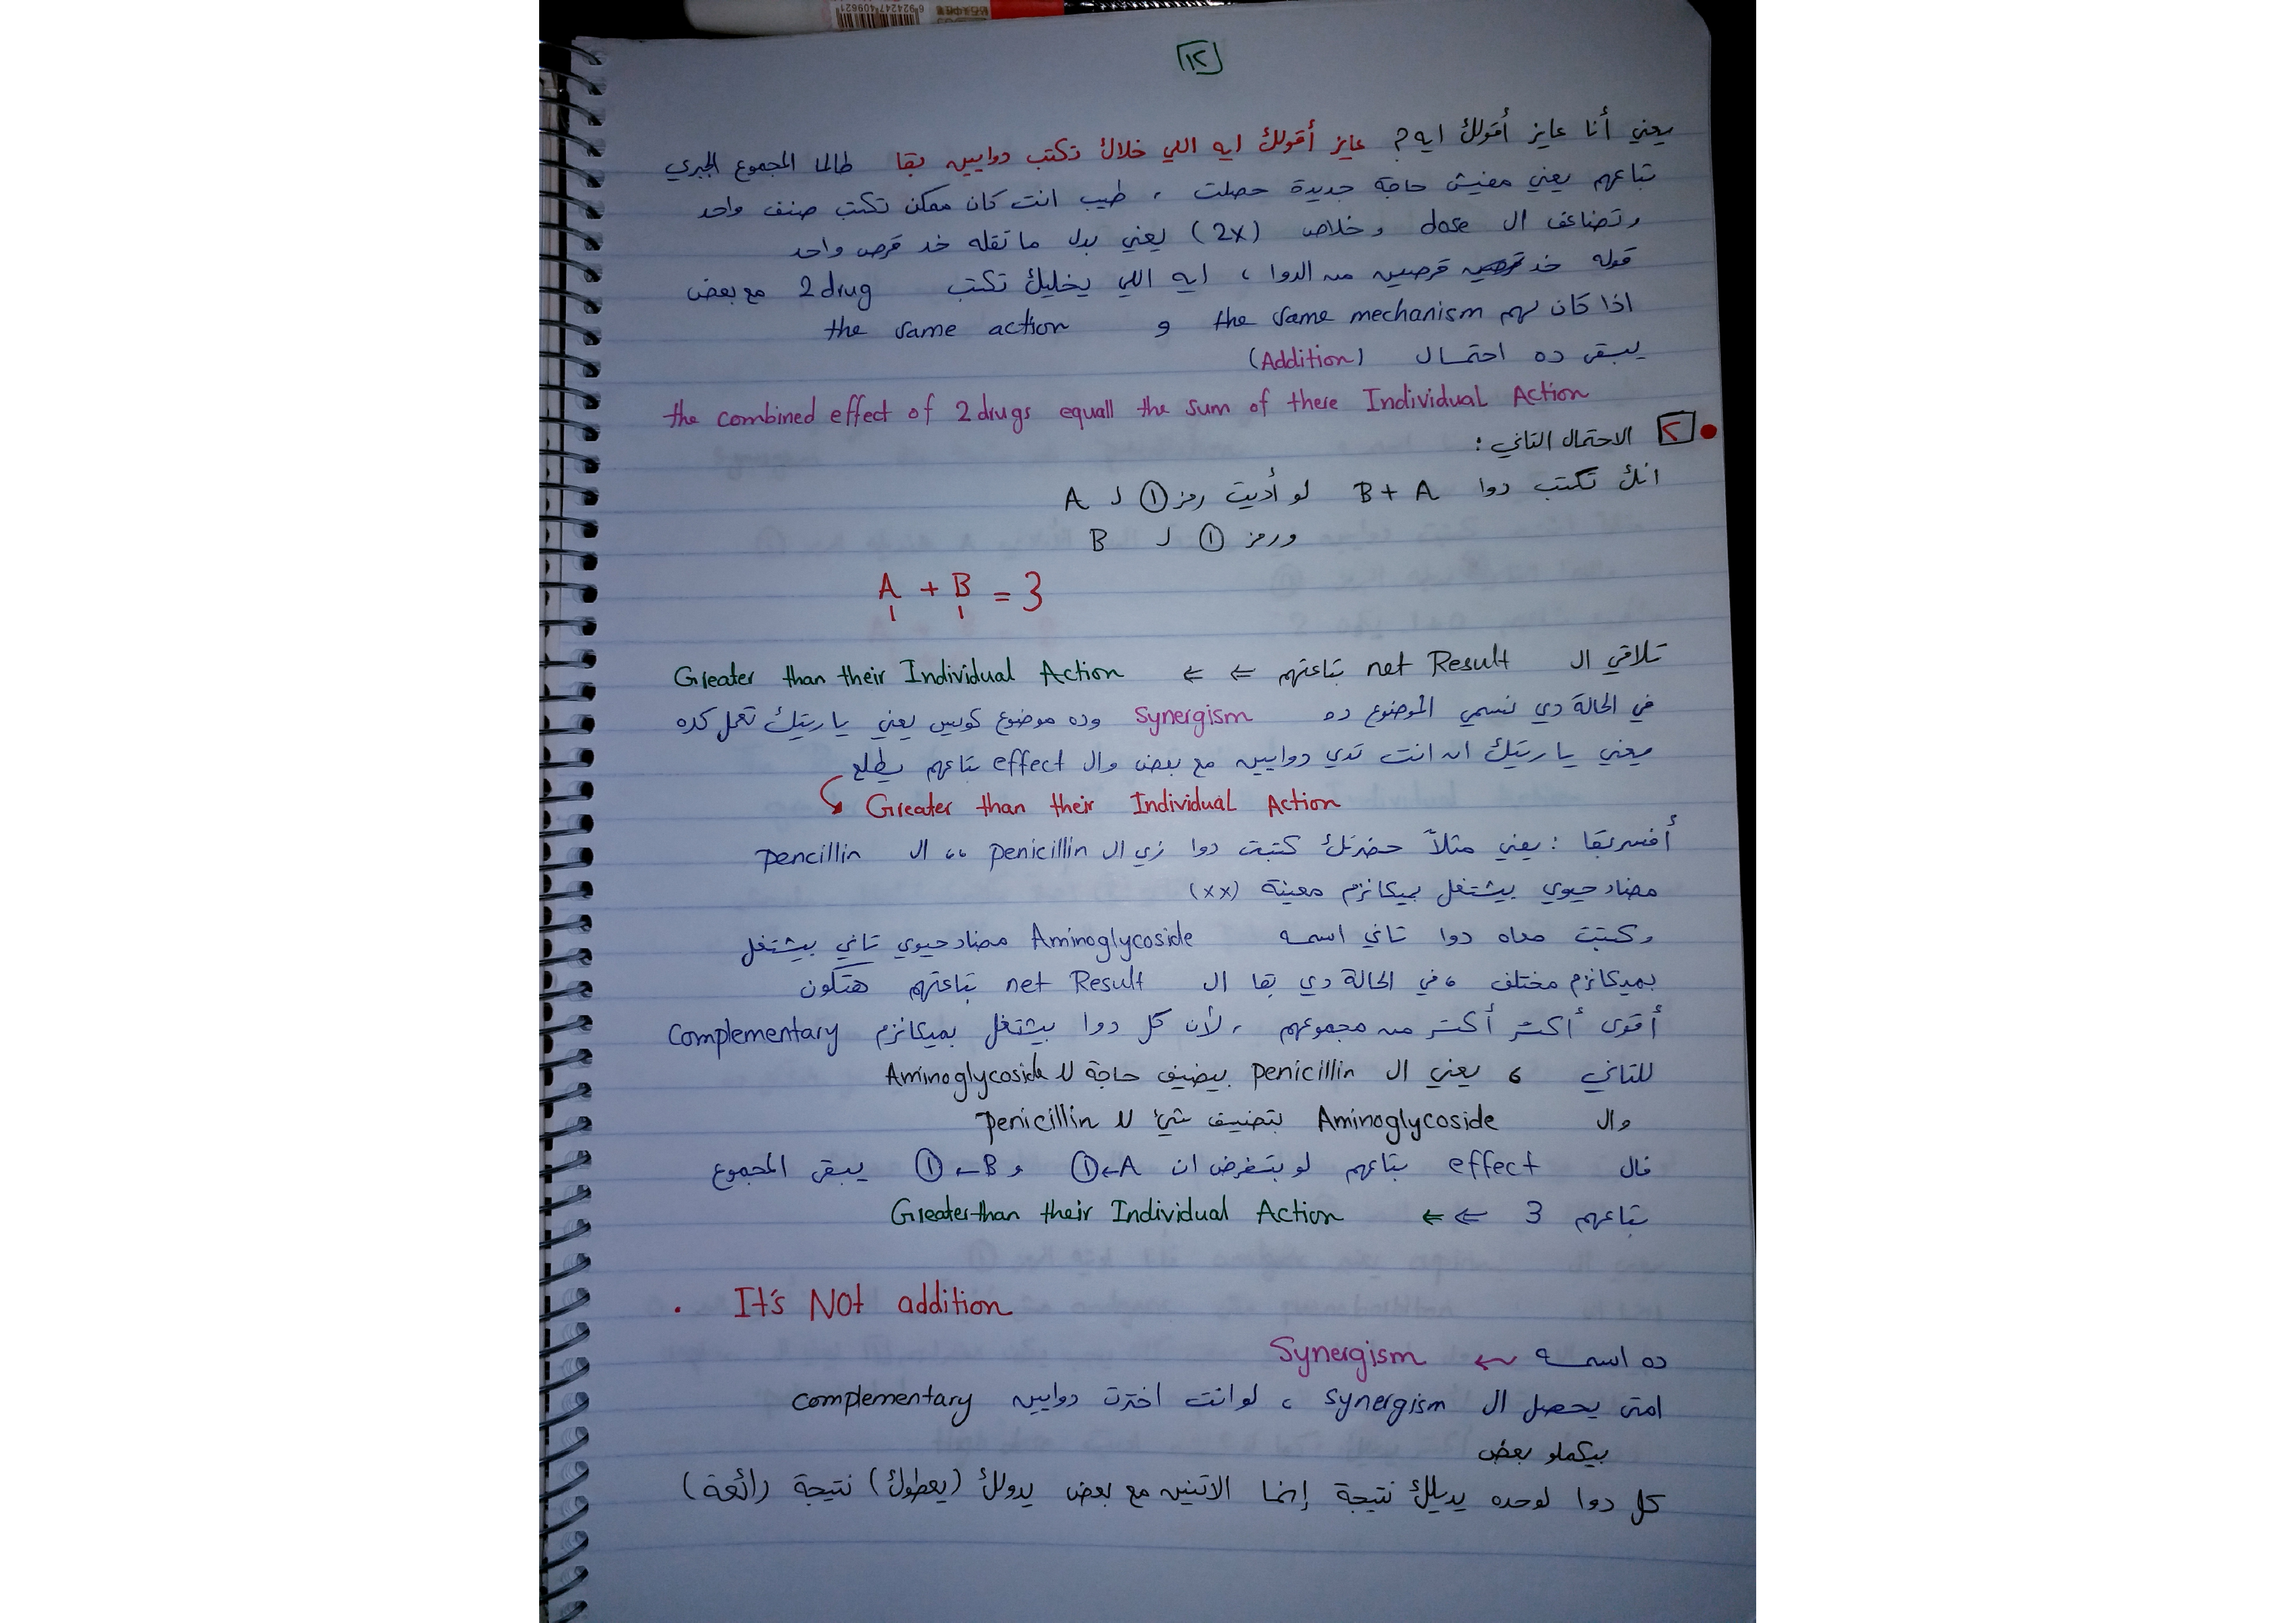 ١٢
يعني أنا عايز أقولك ايه؟ عايز أقولك ايه اللي خلاك تكتب دوايين بقا طالما المجموع الجبري
بتاعهم يعني مفيش حاجة جديدة حصلت ، طيب انت كان ممكن تكتب صنف واحد
وتضاعف ال dose وخلاص (2X) يعني بدل ما تقله خد قرص واحد
قوله خد قرصين من الدوا ، ايه اللي يخليك تكتب 2 drug مع بعض
اذا كان لهم the same mechanism و the same action
يبقى ده احتمال (Addition)
the combined effect of 2 drugs equall the sum of there Individual Action
٢ الاحتمال التاني :
انك تكتب دوا B + A لو أديت رمز ① ل A
ورمز ① ل B
A + B = 3
1 1
تلاقي ال net Result بتاعتهم ⇐ ⇐ Greater than their Individual Action
في الحالة دي نسمي الموضوع ده Synergism وده موضوع كويس يعني ياريتك تعمل كده
يعني ياريتك ان انت تدي دوايين مع بعض وال effect بتاعهم يطلع
Greater than their Individual Action
أفسر بقا : يعني مثلاً حضرتك كتبت دوا زي ال penicillin ،، ال pencillin
مضاد حيوي بيشتغل بميكانزم معينة (xx)
وكتبت معاه دوا تاني اسمه Aminoglycoside مضاد حيوي تاني بيشتغل
بميكانزم مختلف ، في الحالة دي بقا ال net Result بتاعتهم هتكون
أقوى أكتر أكتر من مجموعهم ، لأن كل دوا بيشتغل بميكانزم Complementary
للتاني ، يعني ال penicillin بيضيف حاجة لل Aminoglycoside
وال Aminoglycoside بتضيف شئ لل penicillin
فال effect بتاعهم لو بتفرض ان A ← ① و B ← ① يبقى المجموع
بتاعهم 3 ⇐ ⇐ Greater than their Individual Action
. It's Not addition
ده اسمه ← Synergism
امتى يحصل ال synergism ، لو انت اخترت دوايين complementary
بيكملو بعض
كل دوا لوحده يديلك نتيجة إنما الاتنين مع بعض يدولك (يعطولك) نتيجة (رائعة)